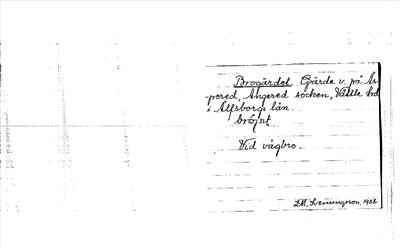 Brogärdet. Gärde v. på Äs-
pered, Angered socken, Vättle hd
i Älfsborgs län.
Vid vägbro.
D.M. Svenungsson, 1938.